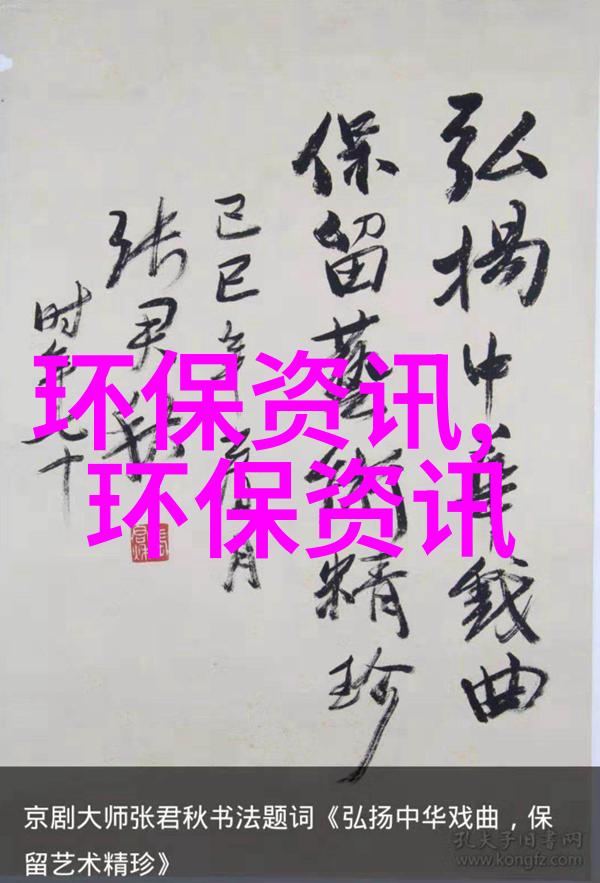 弘揚中華戲曲
保留藝術精珍
己巳年 月
张君秋
时年七十
环保资讯,
环保资讯
京剧大师张君秋书法题词《弘扬中华戏曲，保
留艺术精珍》
孔夫子旧书网
www.kongfz.com